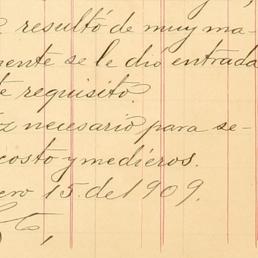 resultó de muy ma-
mente se le dió entrada
te requisito.
z necesario para se-
costo y medieros.
ero 15. de 1909.